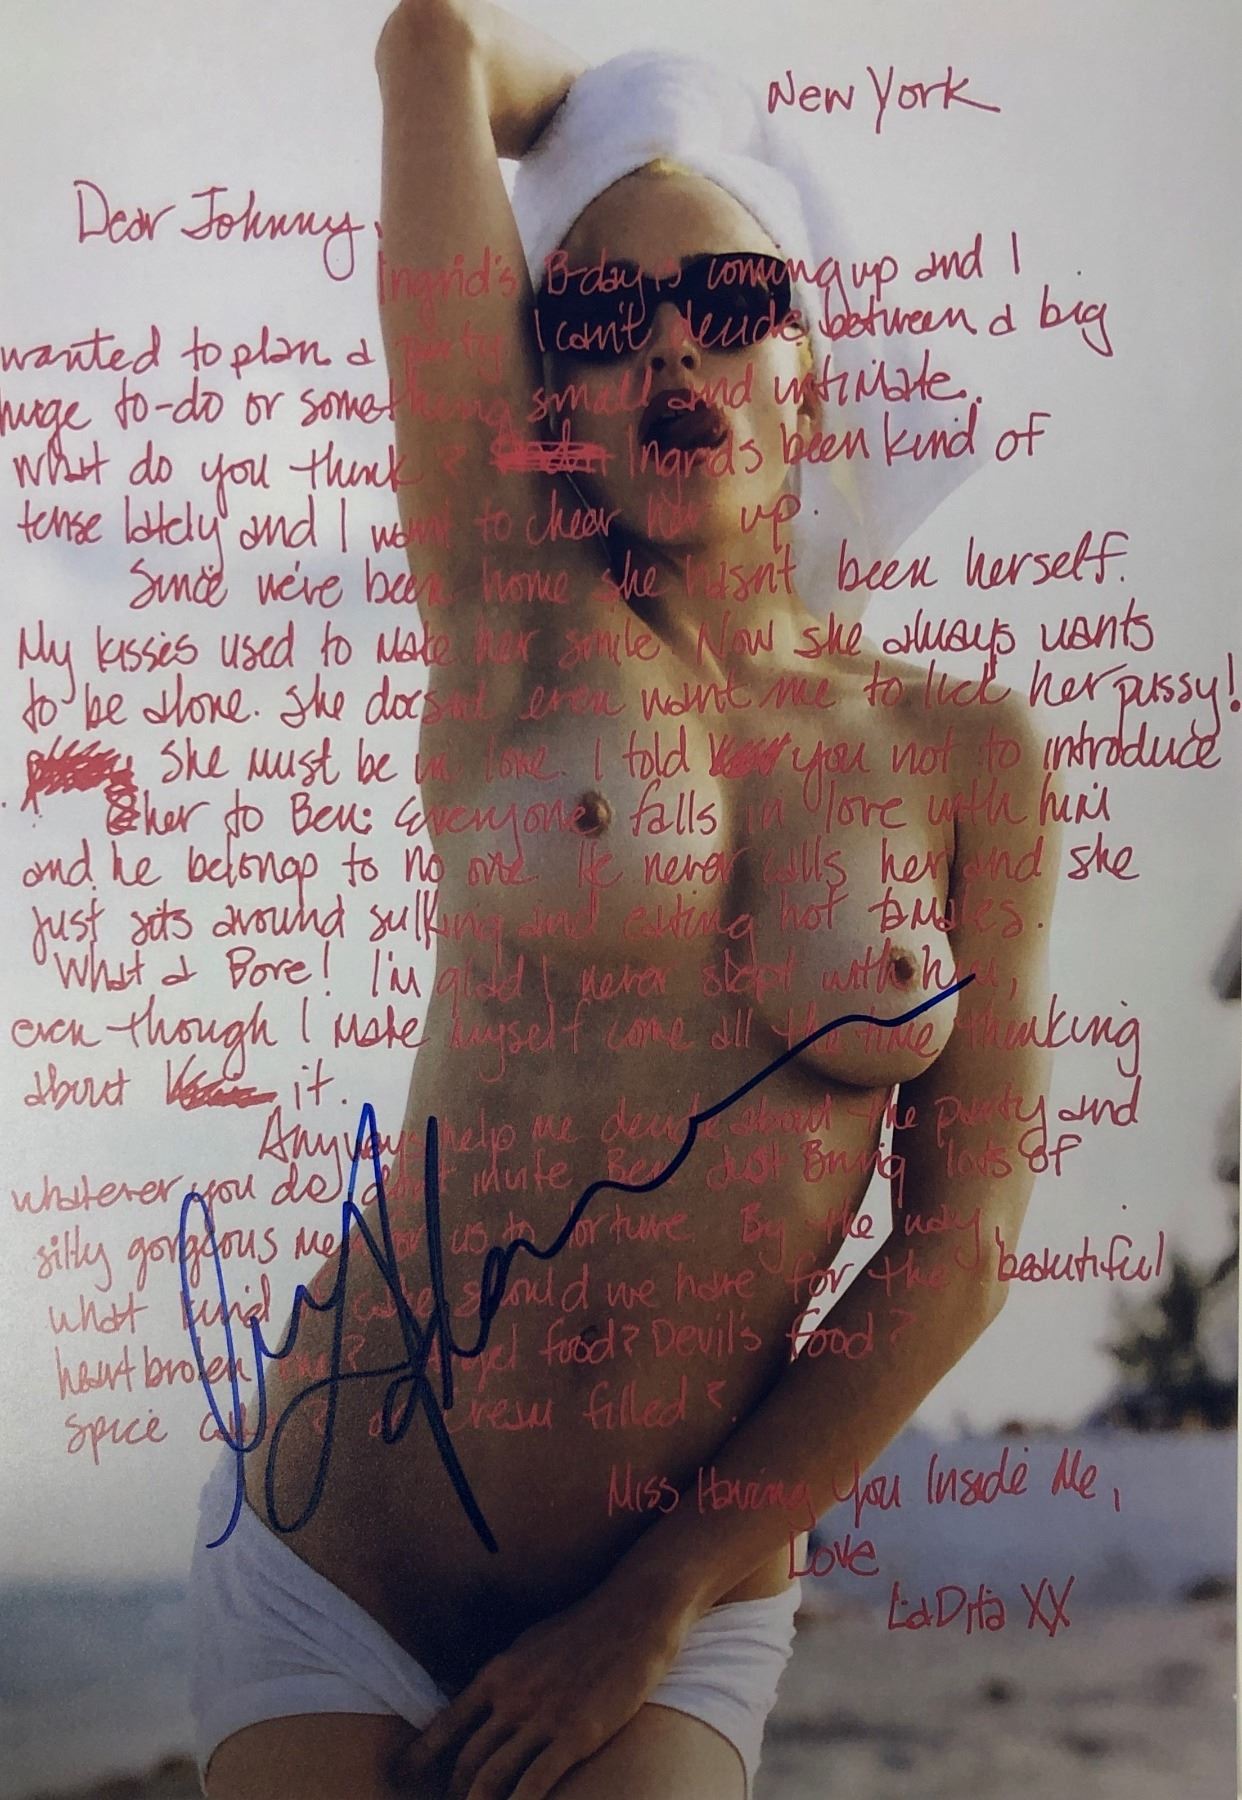 New York
Dear Johnny,
Ingrid's B-day is coming up and I
wanted to plan a party. I can't decide between a big
huge to-do or something small and intimate.
What do you think? Ingrid's been kind of
tense lately and I want to cheer her up.
Since we've been home she hasn't been herself.
My kisses used to make her smile. Now she always wants
to be alone. She doesn't even want me to lick her pussy!
She must be in love. I told you not to introduce
her to Ben: Everyone falls in love with him
and he belongs to no one. He never calls her and she
just sits around sulking and eating hot tamales.
What a Bore! I'm glad I never slept with him,
even though I make myself come all the time thinking
about it.
Anyway, help me decide about the party and
whatever you do don't invite Ben. Just Bring lots of
silly gorgeous men for us to torture. By the way,
what kind of cake should we have for the beautiful
heartbroken one? Angel food? Devil's food?
Spice cake? or Cream filled?
Miss Having You Inside Me,
Love
La Dita XX